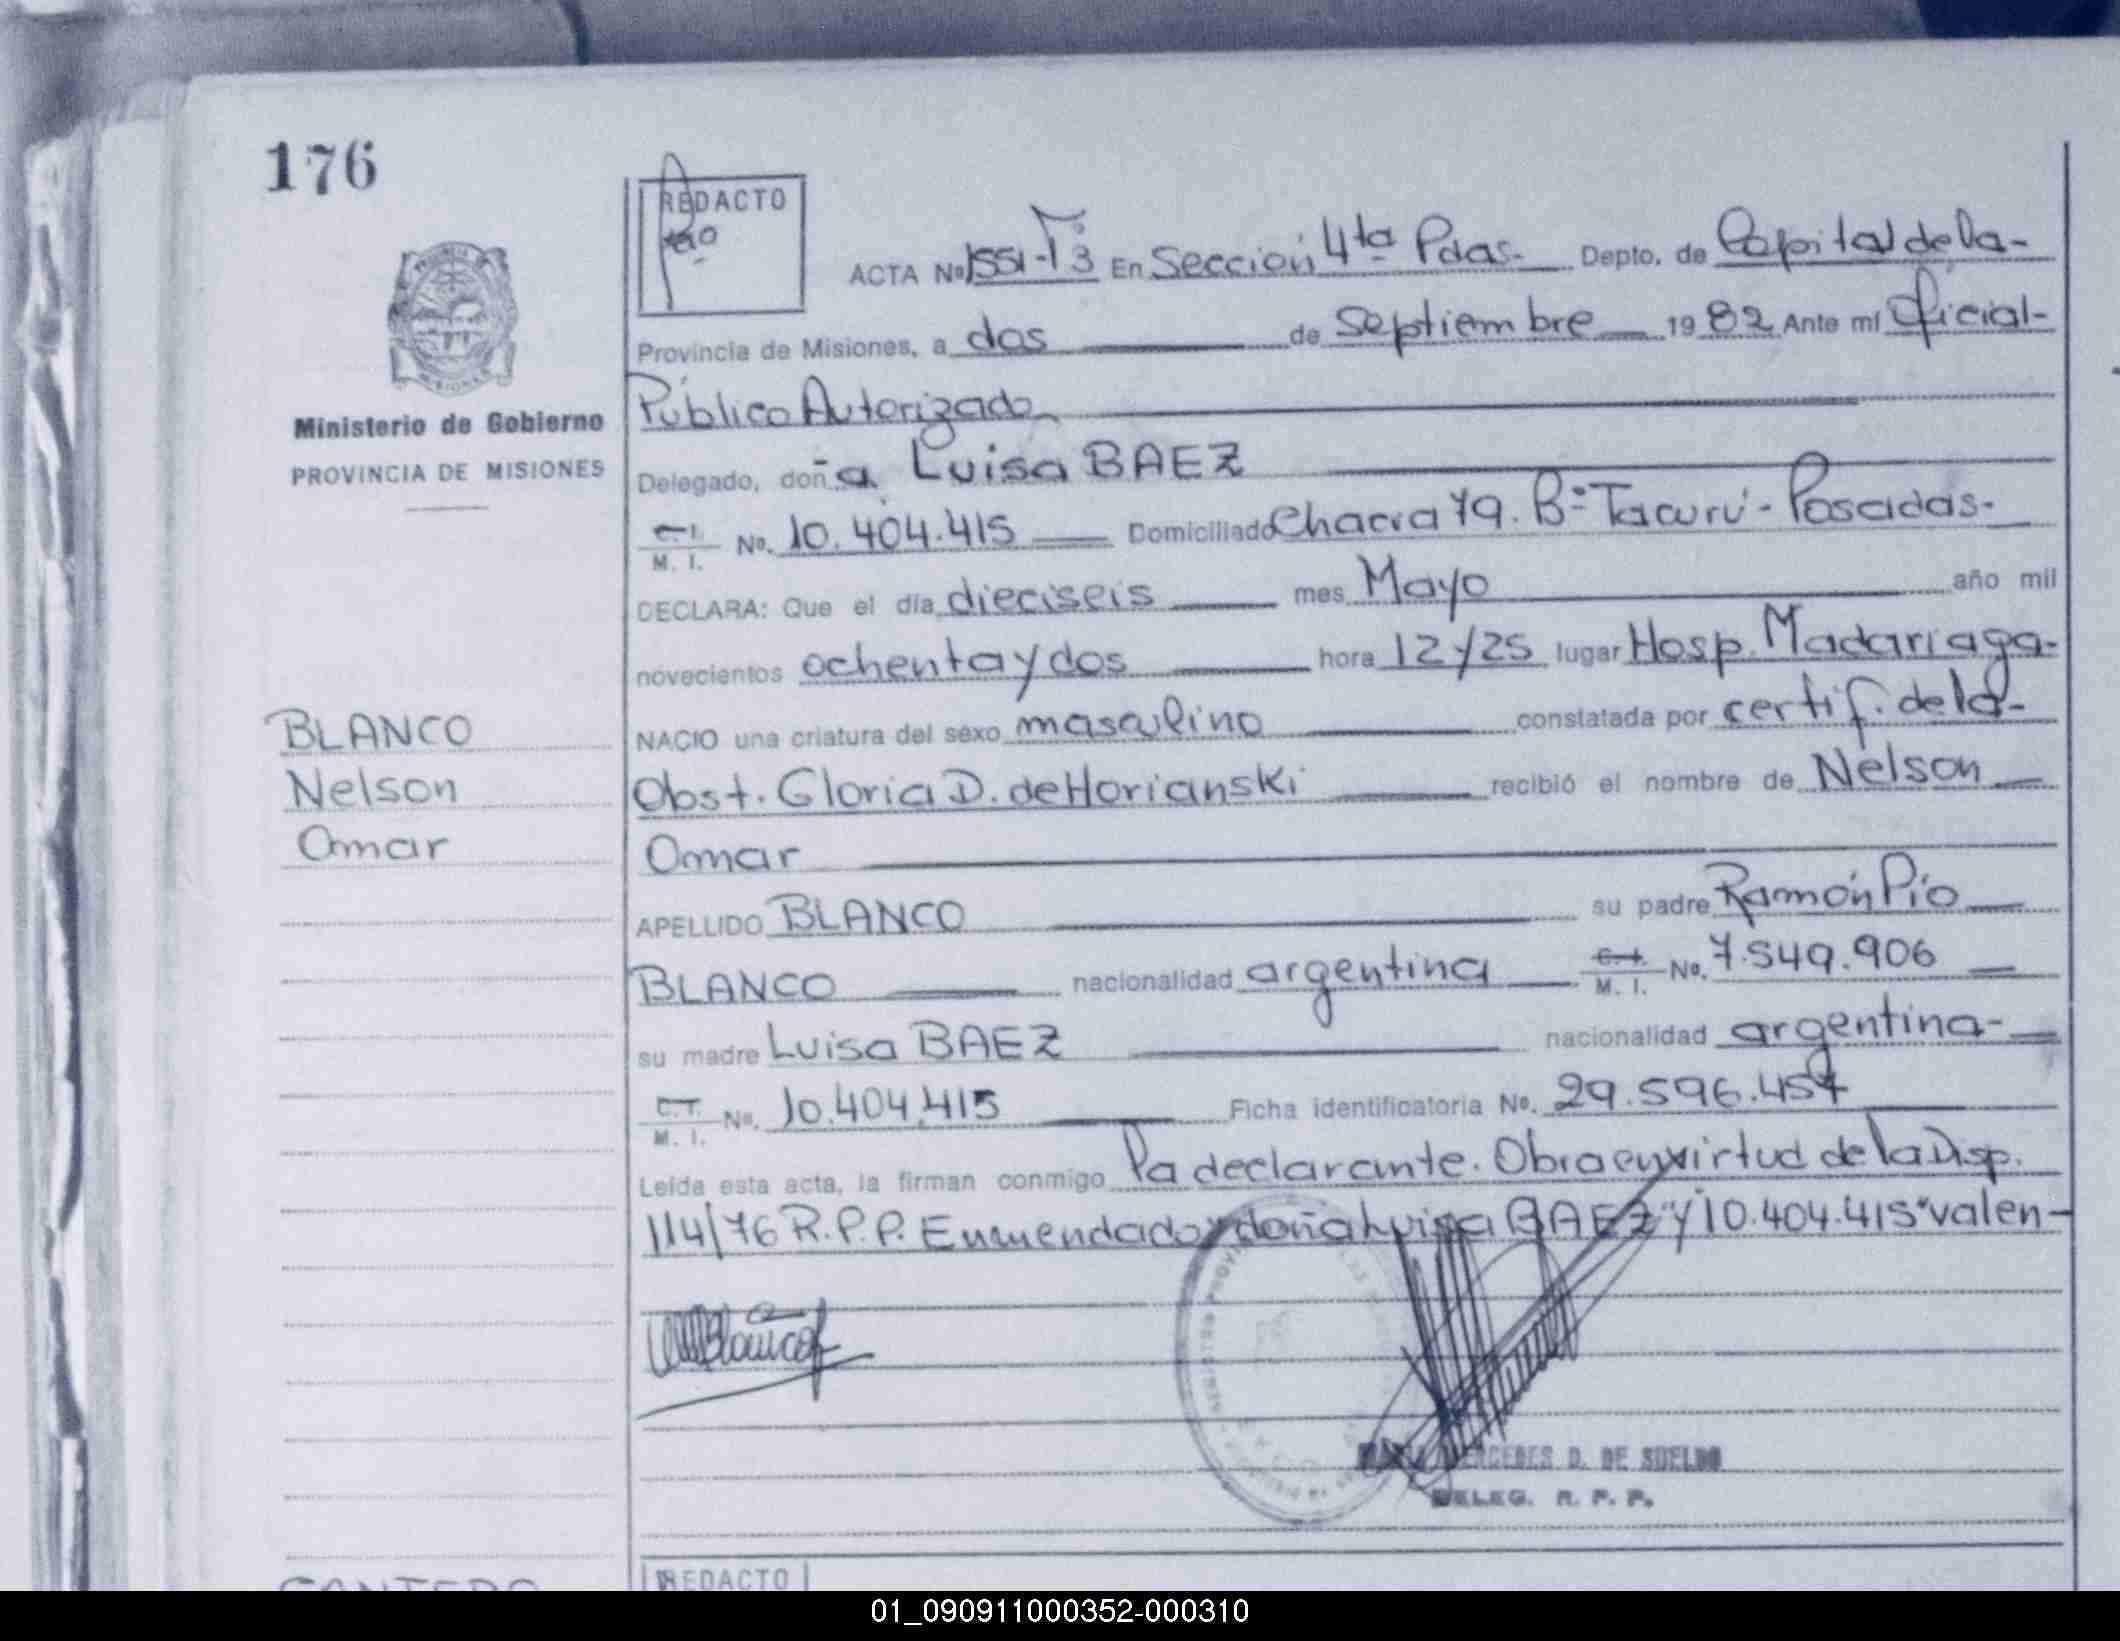 176
REDACTO
ACTA No 1551-Tº3 En Sección 4ta Pdas.- Depto. de Capital de la-
Provincia de Misiones, a dos de Septiembre 1982 Ante mí Oficial-
Público Autorizado
Ministerio de Gobierno
PROVINCIA DE MISIONES
Delegado, doña Luisa BAEZ
C.I. M. I. No. 10.404.415 Domiciliado Chacra 79. Bº Tacurú - Posadas-
DECLARA: Que el día dieciseis mes Mayo año mil
novecientos ochenta y dos hora 12y25 lugar Hosp. Madariaga-
BLANCO
Nelson
Omar
NACIO una criatura del sexo masculino constatada por certif. de la-
Obst. Gloria D. de Horianski recibió el nombre de Nelson
Omar
APELLIDO BLANCO su padre Ramón Pío
BLANCO nacionalidad argentina C.I. M. I. No. 7.549.906
su madre Luisa BAEZ nacionalidad argentina-
C.I. M. I. No. 10.404.415 Ficha identificatoria No. 29.596.457
Leída esta acta, la firman conmigo la declarante. Obra en virtud de la Disp.
114/76 R.P.P. Enmendado "doña Luisa BAEZ" y "10.404.415" valen-
MERCEDES D. DE SUELDO
DELEG. R. P. P.
REDACTO
01_090911000352-000310